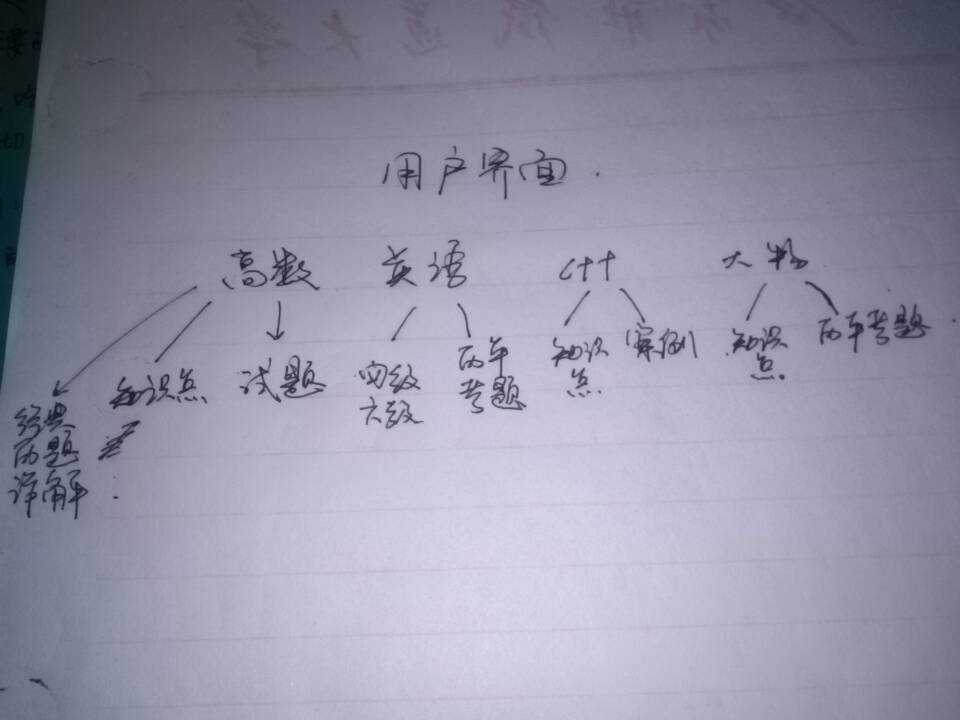 用户界面.
高数 英语 C++ 大物
知识点 试题 四级 六级 历年 考题 知识 点. 案例 知识 点. 历年考题.
经典
历题
详解.